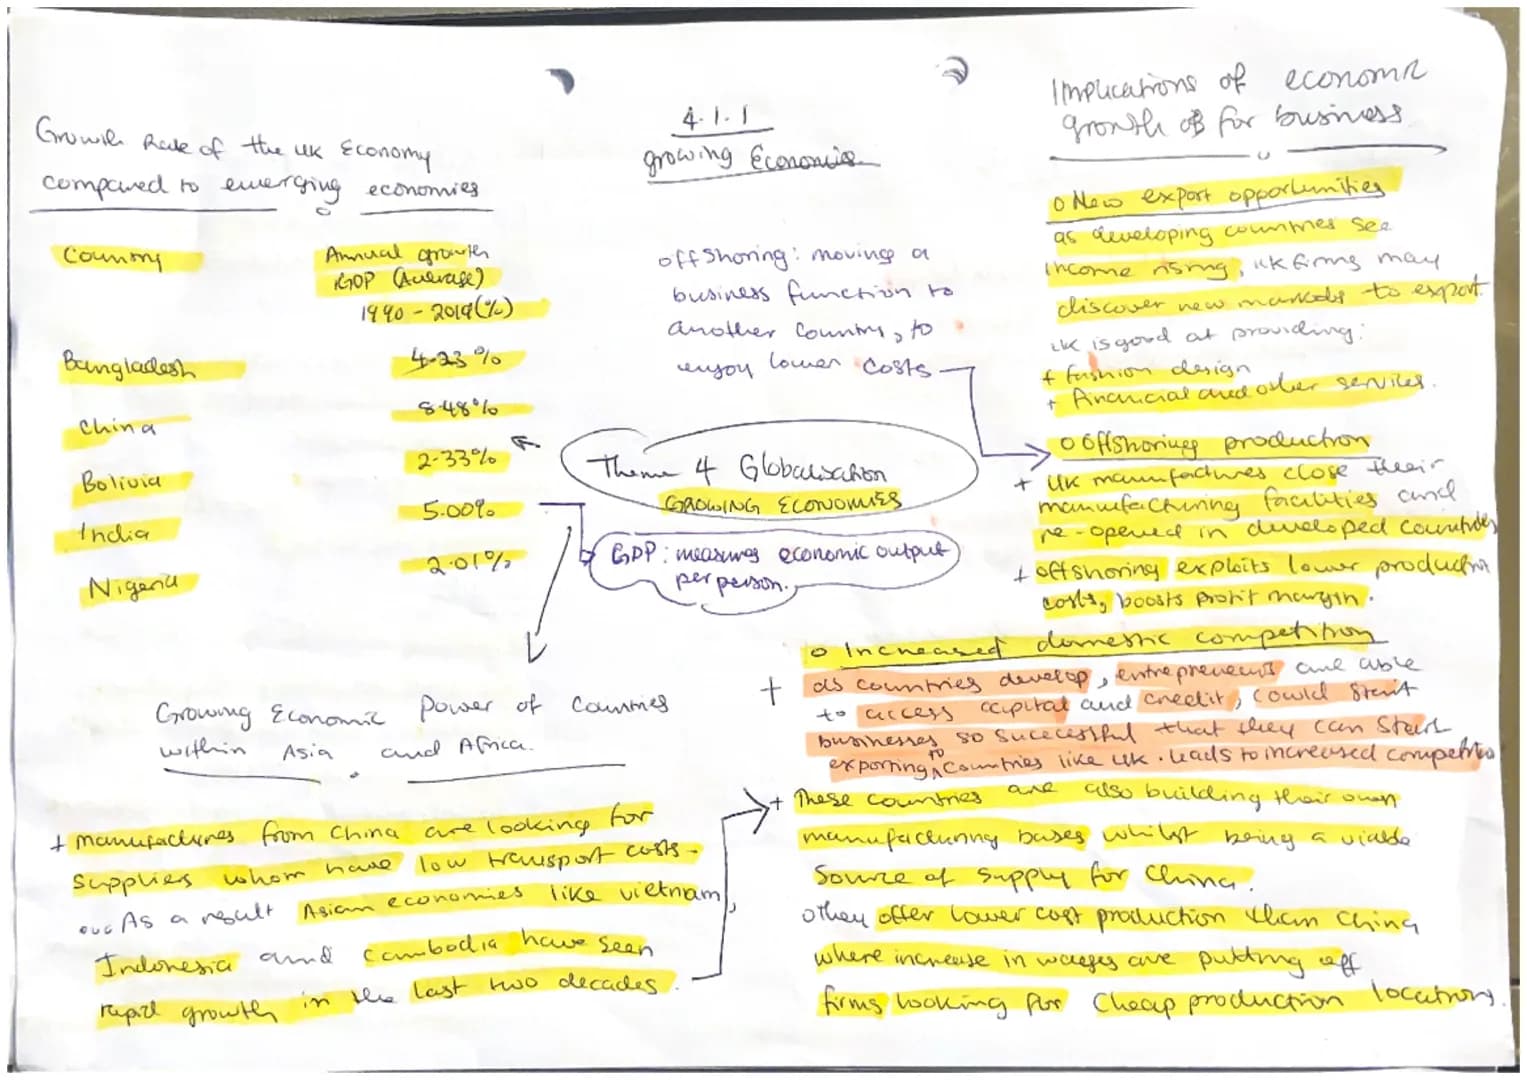 4.1.1
growing Economies
Growth Rate of the UK Economy
compared to emerging economies
Country
Annual growth
GDP (Average)
1990 - 2019(%)
Bangladesh
4.23%
China
8.48%
Bolivia
2.33%
India
5.00%
Nigeria
2.01%
offshoring: moving a
business function to
another country, to
enjoy lower costs
Theme 4 Globalisation
GROWING ECONOMIES
GDP: measures economic output
per person.
Growing Economic Power of Countries
within Asia and Africa.
+ manufactures from China are looking for
suppliers whom have low transport costs.
As a result Asian economies like vietnam,
Indonesia and Cambodia have seen
rapid growth in the last two decades.
Implications of economic
growth of for business
o New export opportunities
as developing countries see
income rising, UK firms may
discover new markets to export.
UK is good at providing:
+ fashion design
+ financial and other services.
o Offshoring production
+ UK manufactures close their
manufacturing facilities and
re-opened in developed countries
+ offshoring exploits lower production
costs, boosts profit margin.
o Increased domestic competition
+ as countries develop, entrepreneurs are able
to access capital and credit, could start
businesses so successful that they can start
exporting to countries like UK. Leads to increased competition
+ These countries are also building their own
manufacturing bases whilst being a viable
source of supply for China.
othey offer lower cost production than China
where increase in wages are putting off
firms looking for cheap production locations.